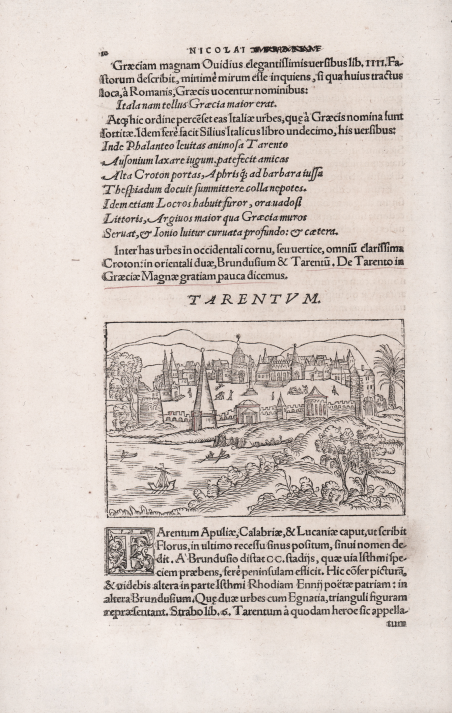 NICOLAI
Græciam magnam Ouidius elegantissimis uersibus lib. IIII. Fa-
storum describit, minimè mirum esse inquiens, si qua huius tractus
loca, à Romanis, Græcis uocentur nominibus:
Itala nam tellus Græcia maior erat.
Atq; hic ordine percēset eas Italiæ urbes, quę à Græcis nomina sunt
sortitæ. Idem ferè facit Silius Italicus libro undecimo, his uersibus:
Inde Phalanteo leuitas animosa Tarento
Ausonium laxare iugum. patefecit amicas
Alta Croton portas, Aphrisq; ad barbara iussa
Thespiadum docuit summittere colla nepotes.
Idem etiam Locros habuit furor, ora uadosi
Littoris, Argiuos maior qua Græcia muros
Seruat, & Ionio luitur curuata profundo: & cætera.
Inter has urbes in occidentali cornu, seu uertice, omniū clarissima
Croton: in orientali duæ, Brundusium & Tarentū. De Tarento in
Græciæ Magnæ gratiam pauca dicemus.
TARENTVM.
TArentum Apuliæ, Calabriæ, & Lucaniæ caput, ut scribit
Florus, in ultimo recessu sinus positum, sinui nomen de-
dit. A Brundusio distat CC. stadijs, quæ uia Isthmi spe-
ciem præbens, ferè peninsulam efficit. Hic cōfer picturā,
& uidebis altera in parte Isthmi Rhodiam Ennij poëtæ patriam: in
altera Brundusium. Quę duæ urbes cum Egnatia, trianguli figuram
repræsentant. Strabo lib. 6. Tarentum à quodam heroe sic appella-
tum